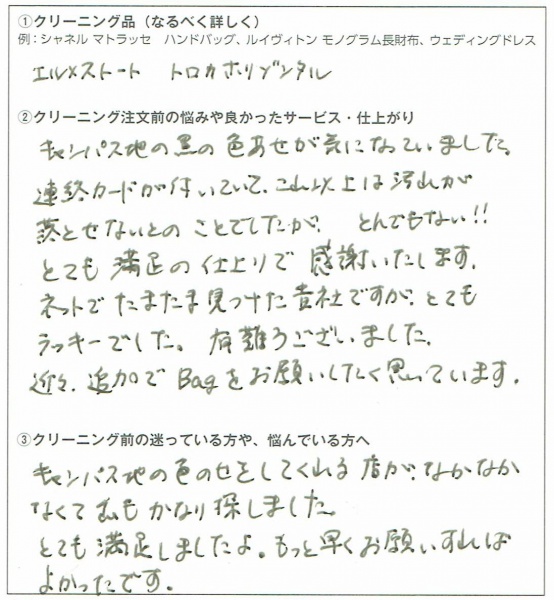 ①クリーニング品（なるべく詳しく）
例：シャネル マトラッセ　ハンドバッグ、ルイヴィトン モノグラム長財布、ウェディングドレス
エルメストート　トロカホリゾンタル
②クリーニング注文前の悩みや良かったサービス・仕上がり
キャンパス地の黒の色あせが気になっていました。
連絡カードが付いていて、これ以上は汚れが
落とせないとの ことでしたが、 とんでもない!!
とても 満足の仕上りで 感謝いたします。
ネットで たまたま見つけた貴社ですが、とても
ラッキーでした。 有難うございました。
近々、追加で Bagをお願いしたく思っています。
③クリーニング前の迷っている方や、悩んでいる方へ
キャンパス地の色のせをしてくれる 店が、なかなか
なくて 私も かなり探しました。
とても 満足しましたよ。もっと早くお願いすれば
よかったです。